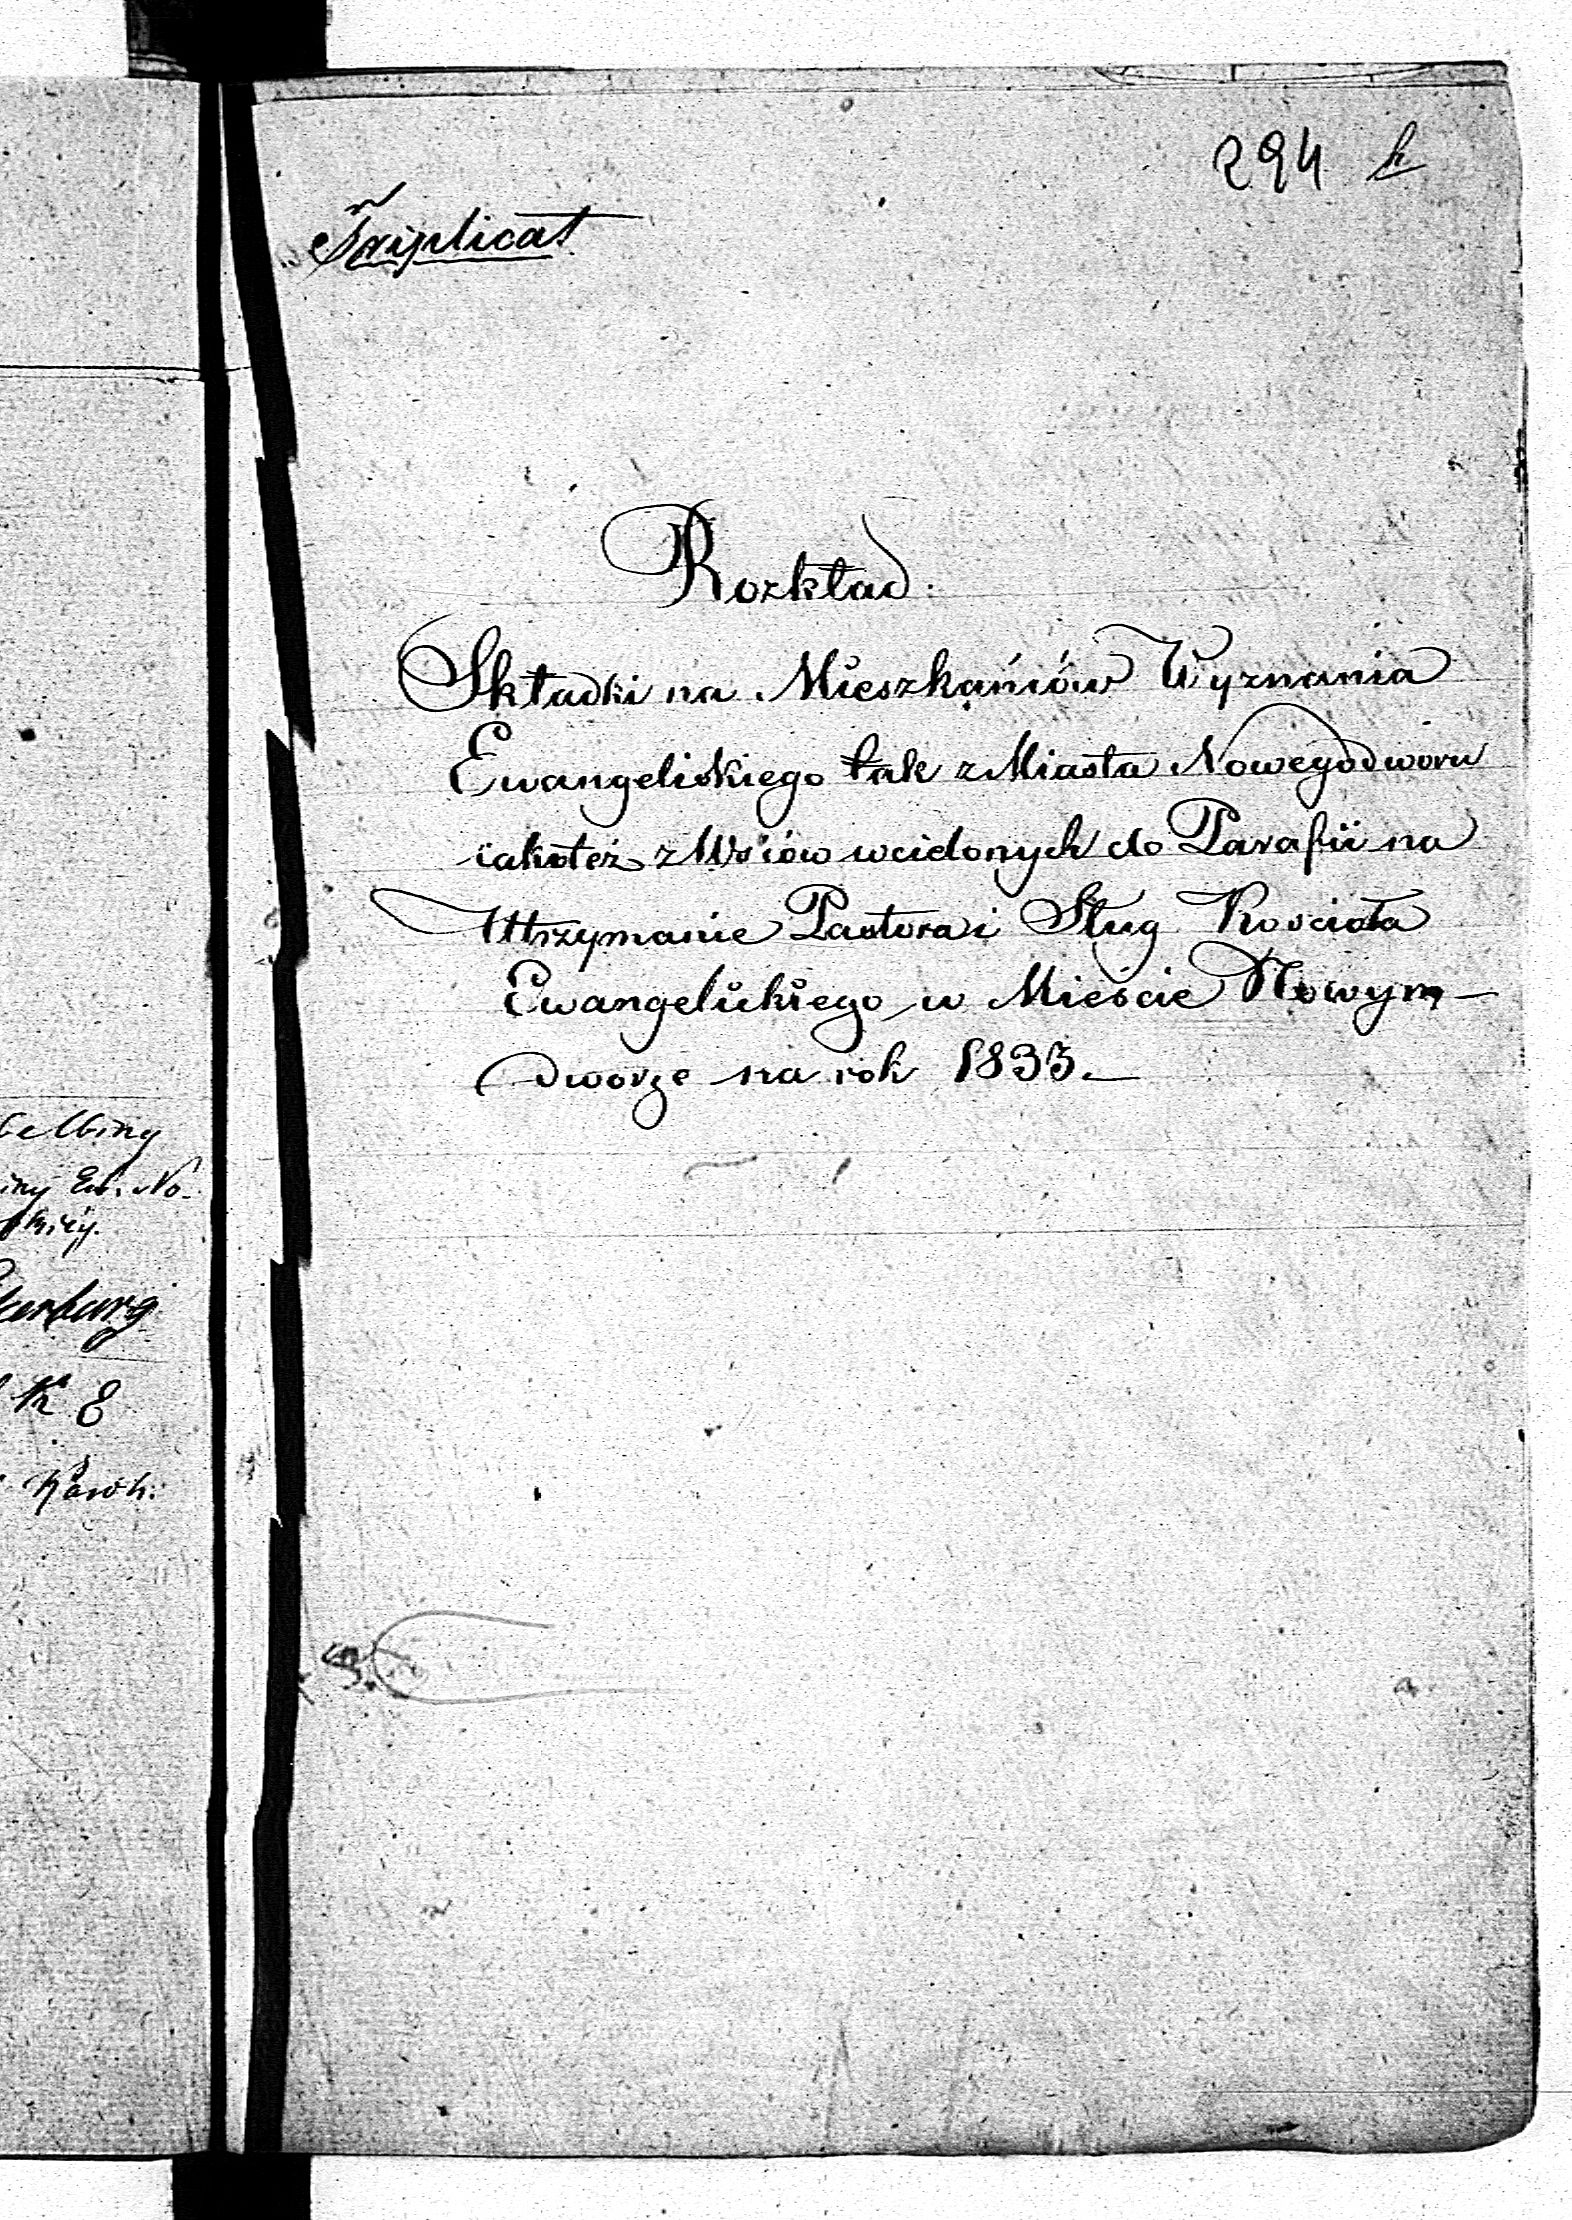 294 k
Triplicat
Rozkład.
Składki na Mieszkańców Wyznania
Ewangeliskiego tak z Miasta Nowegodworu
iakoteż z Wsiów wcielonych do Parafii na
Utrzymanie Pastora i Sług Kościoła
Ewangelickiego w Mieście Nowym-
dworze na rok 1833.—
iny Ew. No-
K 8